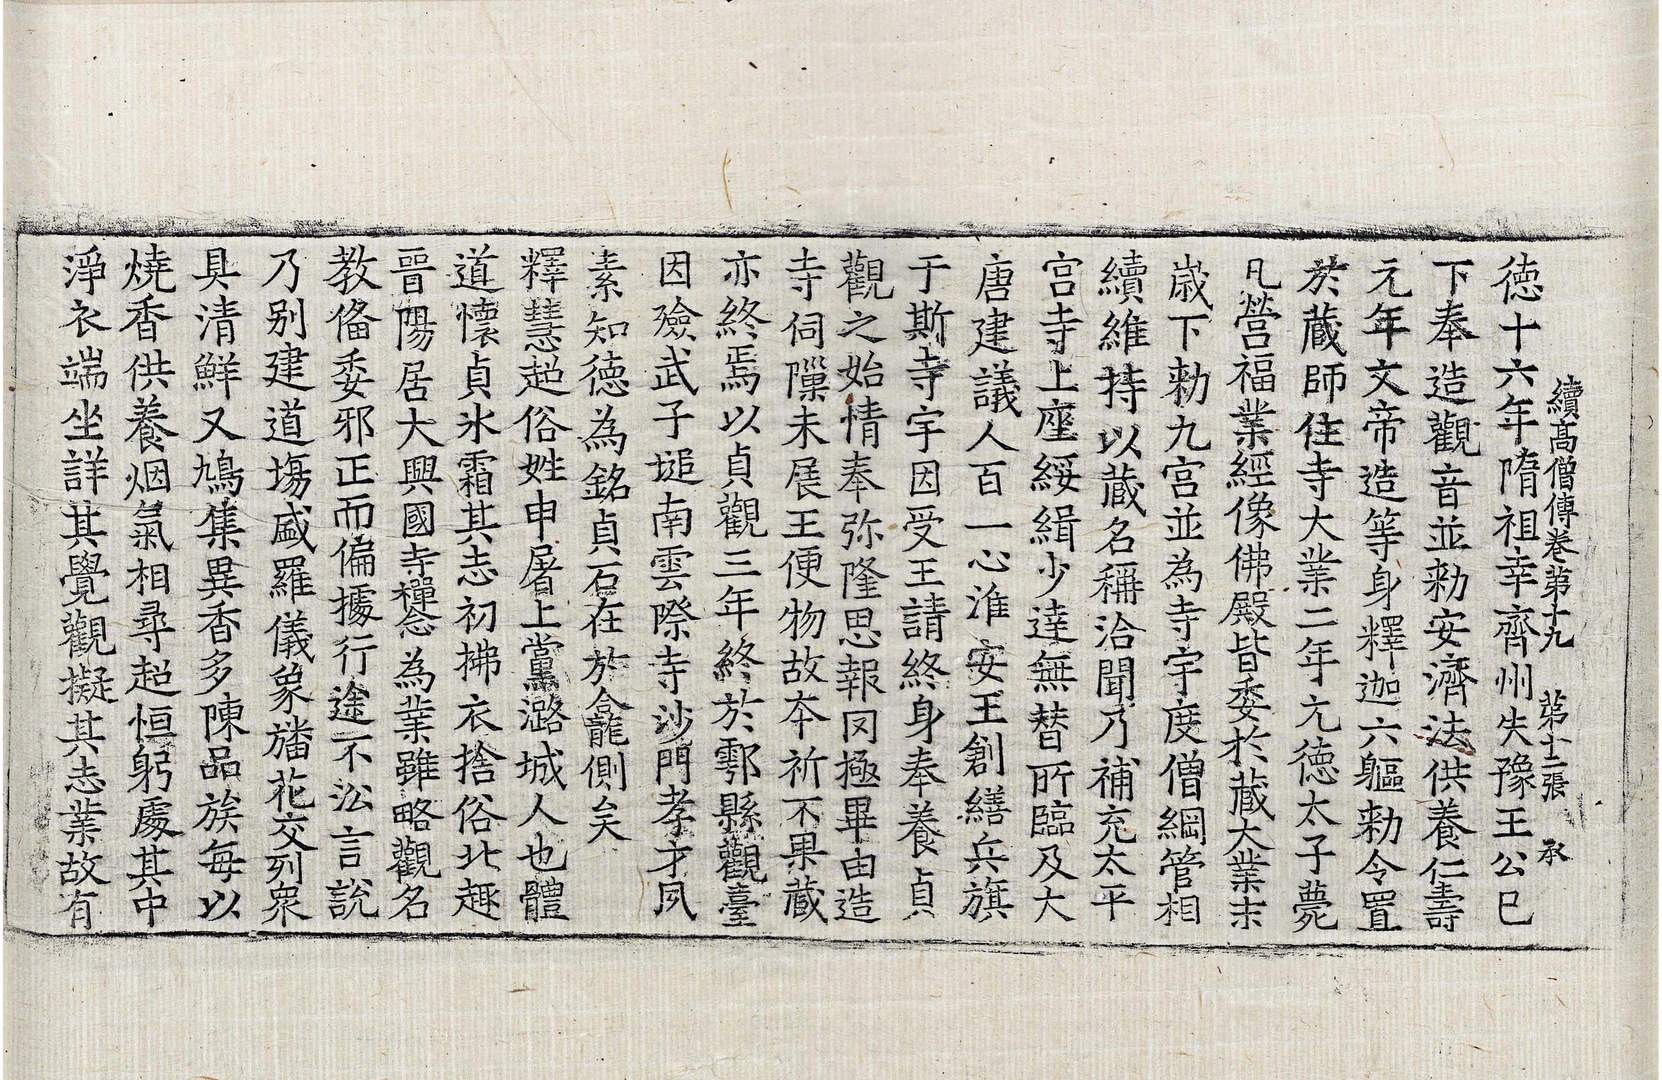 續高僧傳卷第十九　第十二張　承
德十六年隋祖幸齊州失豫王公巳
下奉造觀音並勑安濟法供養仁壽
元年文帝造等身釋迦六軀勑令置
於蔵師住寺大業二年元德太子薨
凡營福業經像佛殿皆委於蔵大業末
歲下勑九宮並為寺宇度僧綱管相
續維持以蔵名稱洽聞乃補充太平
宮寺上座綏緝少達無替所臨及大
唐建議人百一心淮安王創繕兵旗
于斯寺宇因受王請終身奉養貞
觀之始情奉弥隆思報罔極畢由造
寺伺隟未展王便物故夲祈不果蔵
亦終焉以貞觀三年終於鄠縣觀臺
因殮武子堆南雲際寺沙門孝才夙
素知德為銘貞石在於龕側矣
釋慧超俗姓申屠上黨潞城人也體
道懷貞氷霜其志初拂衣捨俗北趣
晉陽居大興國寺禪念為業雖略觀名
教俻委邪正而偏據行途不訟言說
乃別建道塲盛羅儀象旛花交列衆
具清鮮又鳩集異香多陳品族每以
燒香供養烟氣相尋超恒躬處其中
淨衣端坐詳其覺觀擬其志業故有